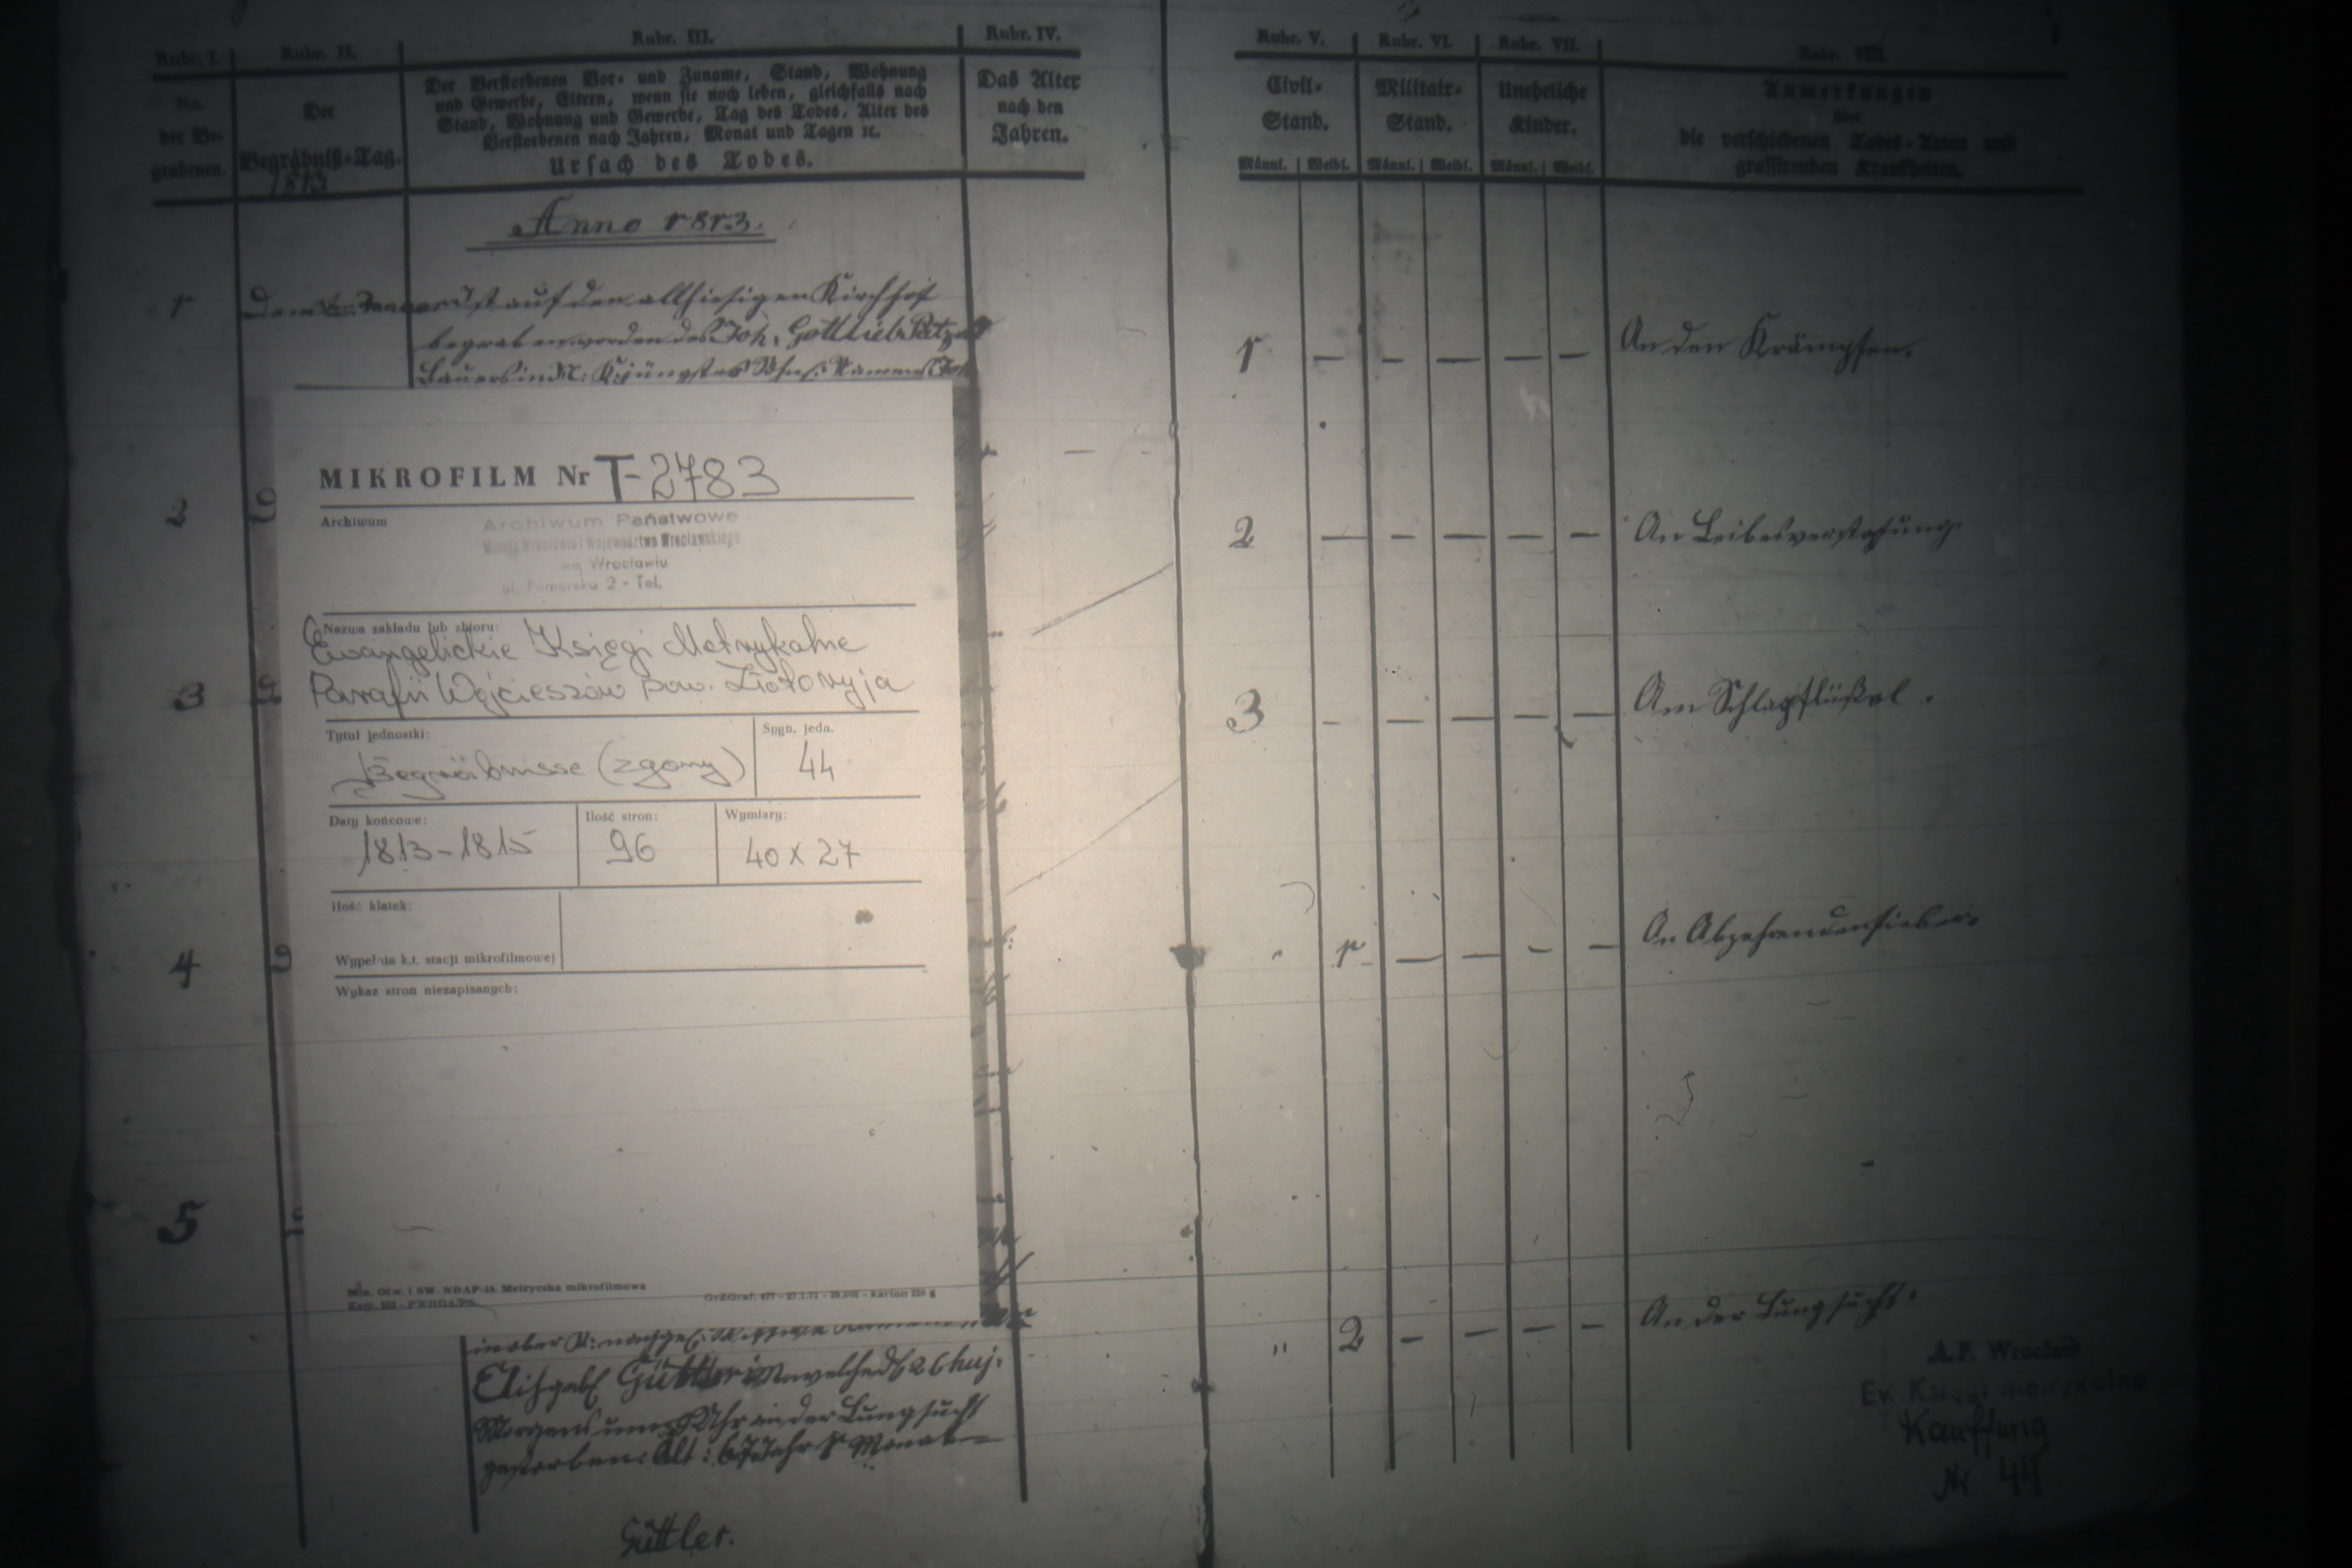 Rubr. I.
Rubr. II.
Rubr. III.
Rubr. IV.
No.
der Be-
grabenen.
Der
Begräbniß-Tag.
1813
Der Verstorbenen Vor- und Zuname, Stand, Wohnung
und Gewerbe, Eltern, wenn sie noch leben, gleichfalls nach
Stand, Wohnung und Gewerbe, Tag des Todes, Alter des
Verstorbenen nach Jahren, Monat und Tagen ꝛc.
Ursach des Todes.
Das Alter
nach den
Jahren.
Anno 1813.
1
ist auf den allhiesigen Kirchhof
begraben worden des Joh. Gottlieb
Bauers in N: K: jüngstes Namens
2
3
4
5
MIKROFILM Nr T-2783
Archiwum
Archiwum Państwowe
Miasta Wrocławia i Województwa Wrocławskiego
we Wrocławiu
ul. Pomorska 2 - Tel.
Nazwa zakładu lub zbioru:
Ewangelickie Księgi Metrykalne
Parafii Wojcieszów pow. Złotoryja
Tytuł jednostki:
Begräbnisse (zgony)
Sygn. jedn.
44
Daty końcowe:
1813-1815
Ilość stron:
96
Wymiary:
40 x 27
Ilość klatek:
Wypełnia k.t. stacji mikrofilmowej
Wykaz stron niezapisanych:
Min. Ośw. i SW. NDAP-15. Metryczka mikrofilmowa
in ober K: nachgel.
Elisabeth Güttlerin welche d 26 huj.
Morgens um Uhr an der Lungsucht
gestorben: Alt: 67 Jahr 1 Monat
Güttler.
Rubr. V.
Rubr. VI.
Rubr. VII.
Rubr. VIII.
Civil-
Stand.
Militair-
Stand.
Uneheliche
Kinder.
Anmerkungen
über
die verschiedenen Todes-Arten und
grassirenden Krankheiten.
Männl. Weibl. Männl. Weibl. Männl. Weibl.
1 — — — — — An den Krämpfen.
2 — — — — — An Leibesverstopfung.
3 — — — — — Am Schlagflüßel.
" 1 — — — — An Abzehrendenfieber.
" 2 — — — — An der Lungsucht.
A.P. Wrocław
Ew. Księgi metrykalne
Kauffung
Nr 44